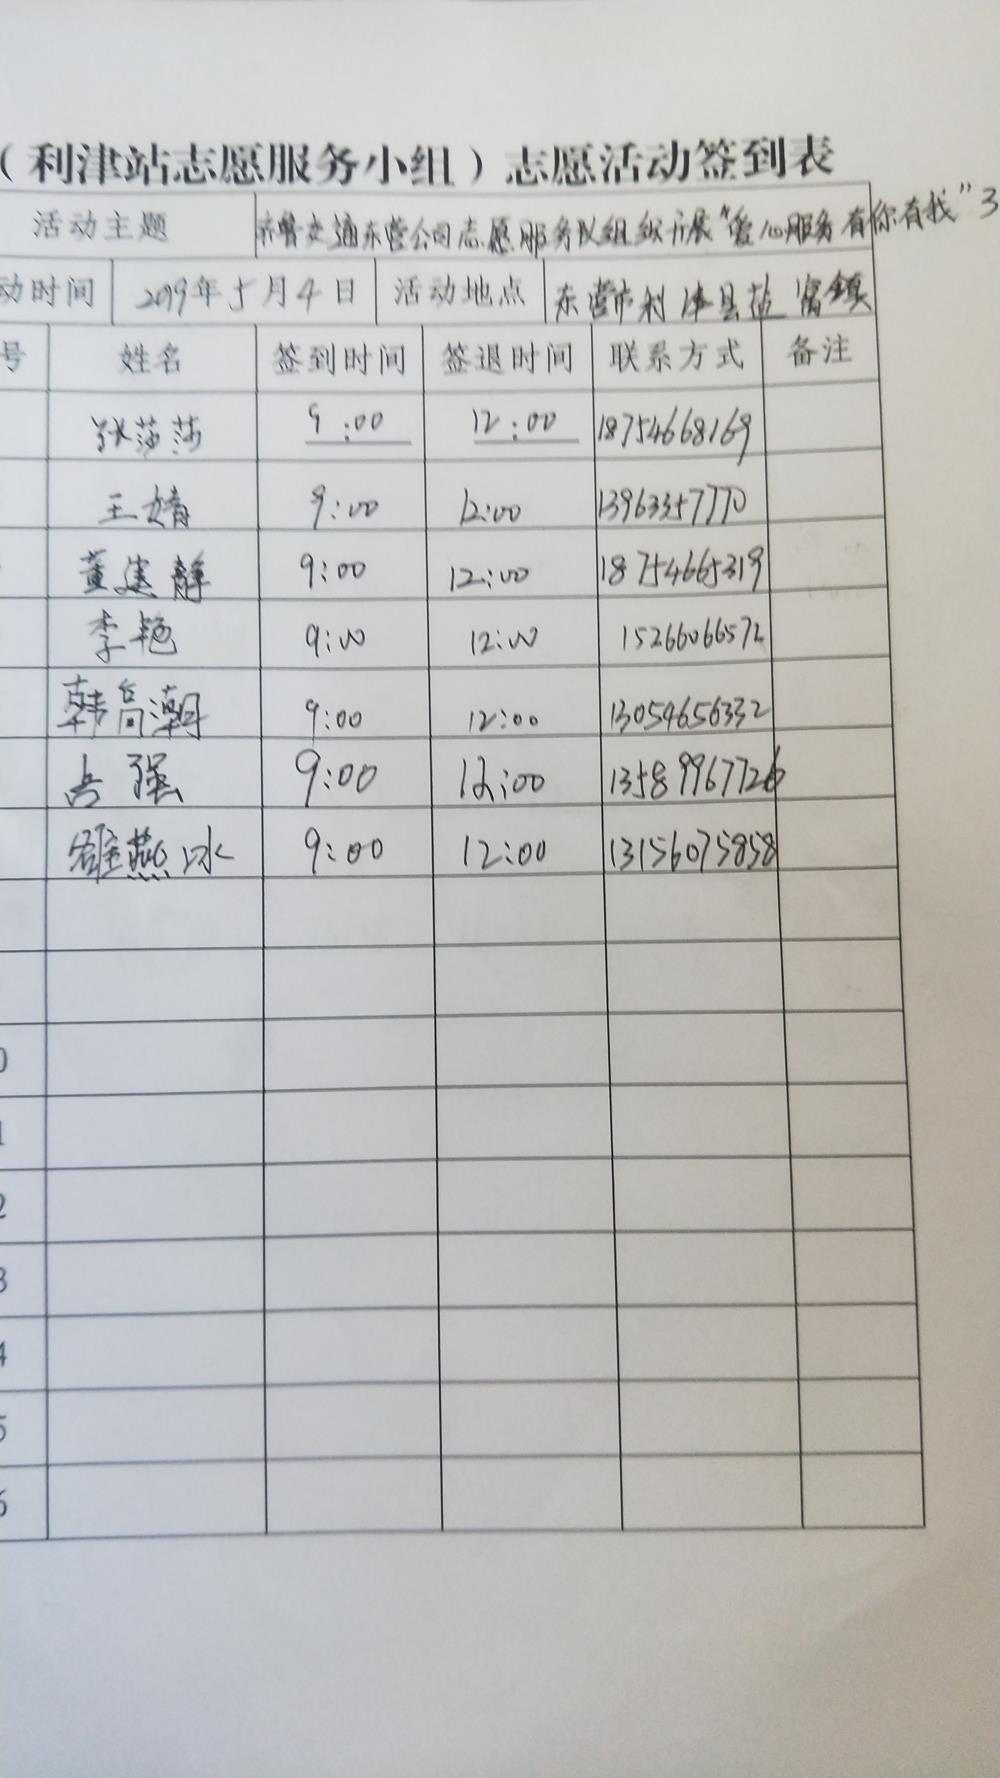 （利津站志愿服务小组）志愿活动签到表
活动主题 齐鲁交通东营公司志愿服务队组织开展“爱心服务有你有我”3
动时间 2019年5月4日 活动地点 东营市利津县盐窝镇
号 姓名 签到时间 签退时间 联系方式 备注
张莎莎 9:00 12:00 18754668169
王婧 9:00 12:00 13963357770
董建静 9:00 12:00 18754665319
李艳 9:00 12:00 15266066572
韩高潮 9:00 12:00 13054656332
强 9:00 12:00 13589967726
燕冰 9:00 12:00 13156075858
0
1
2
3
4
5
6